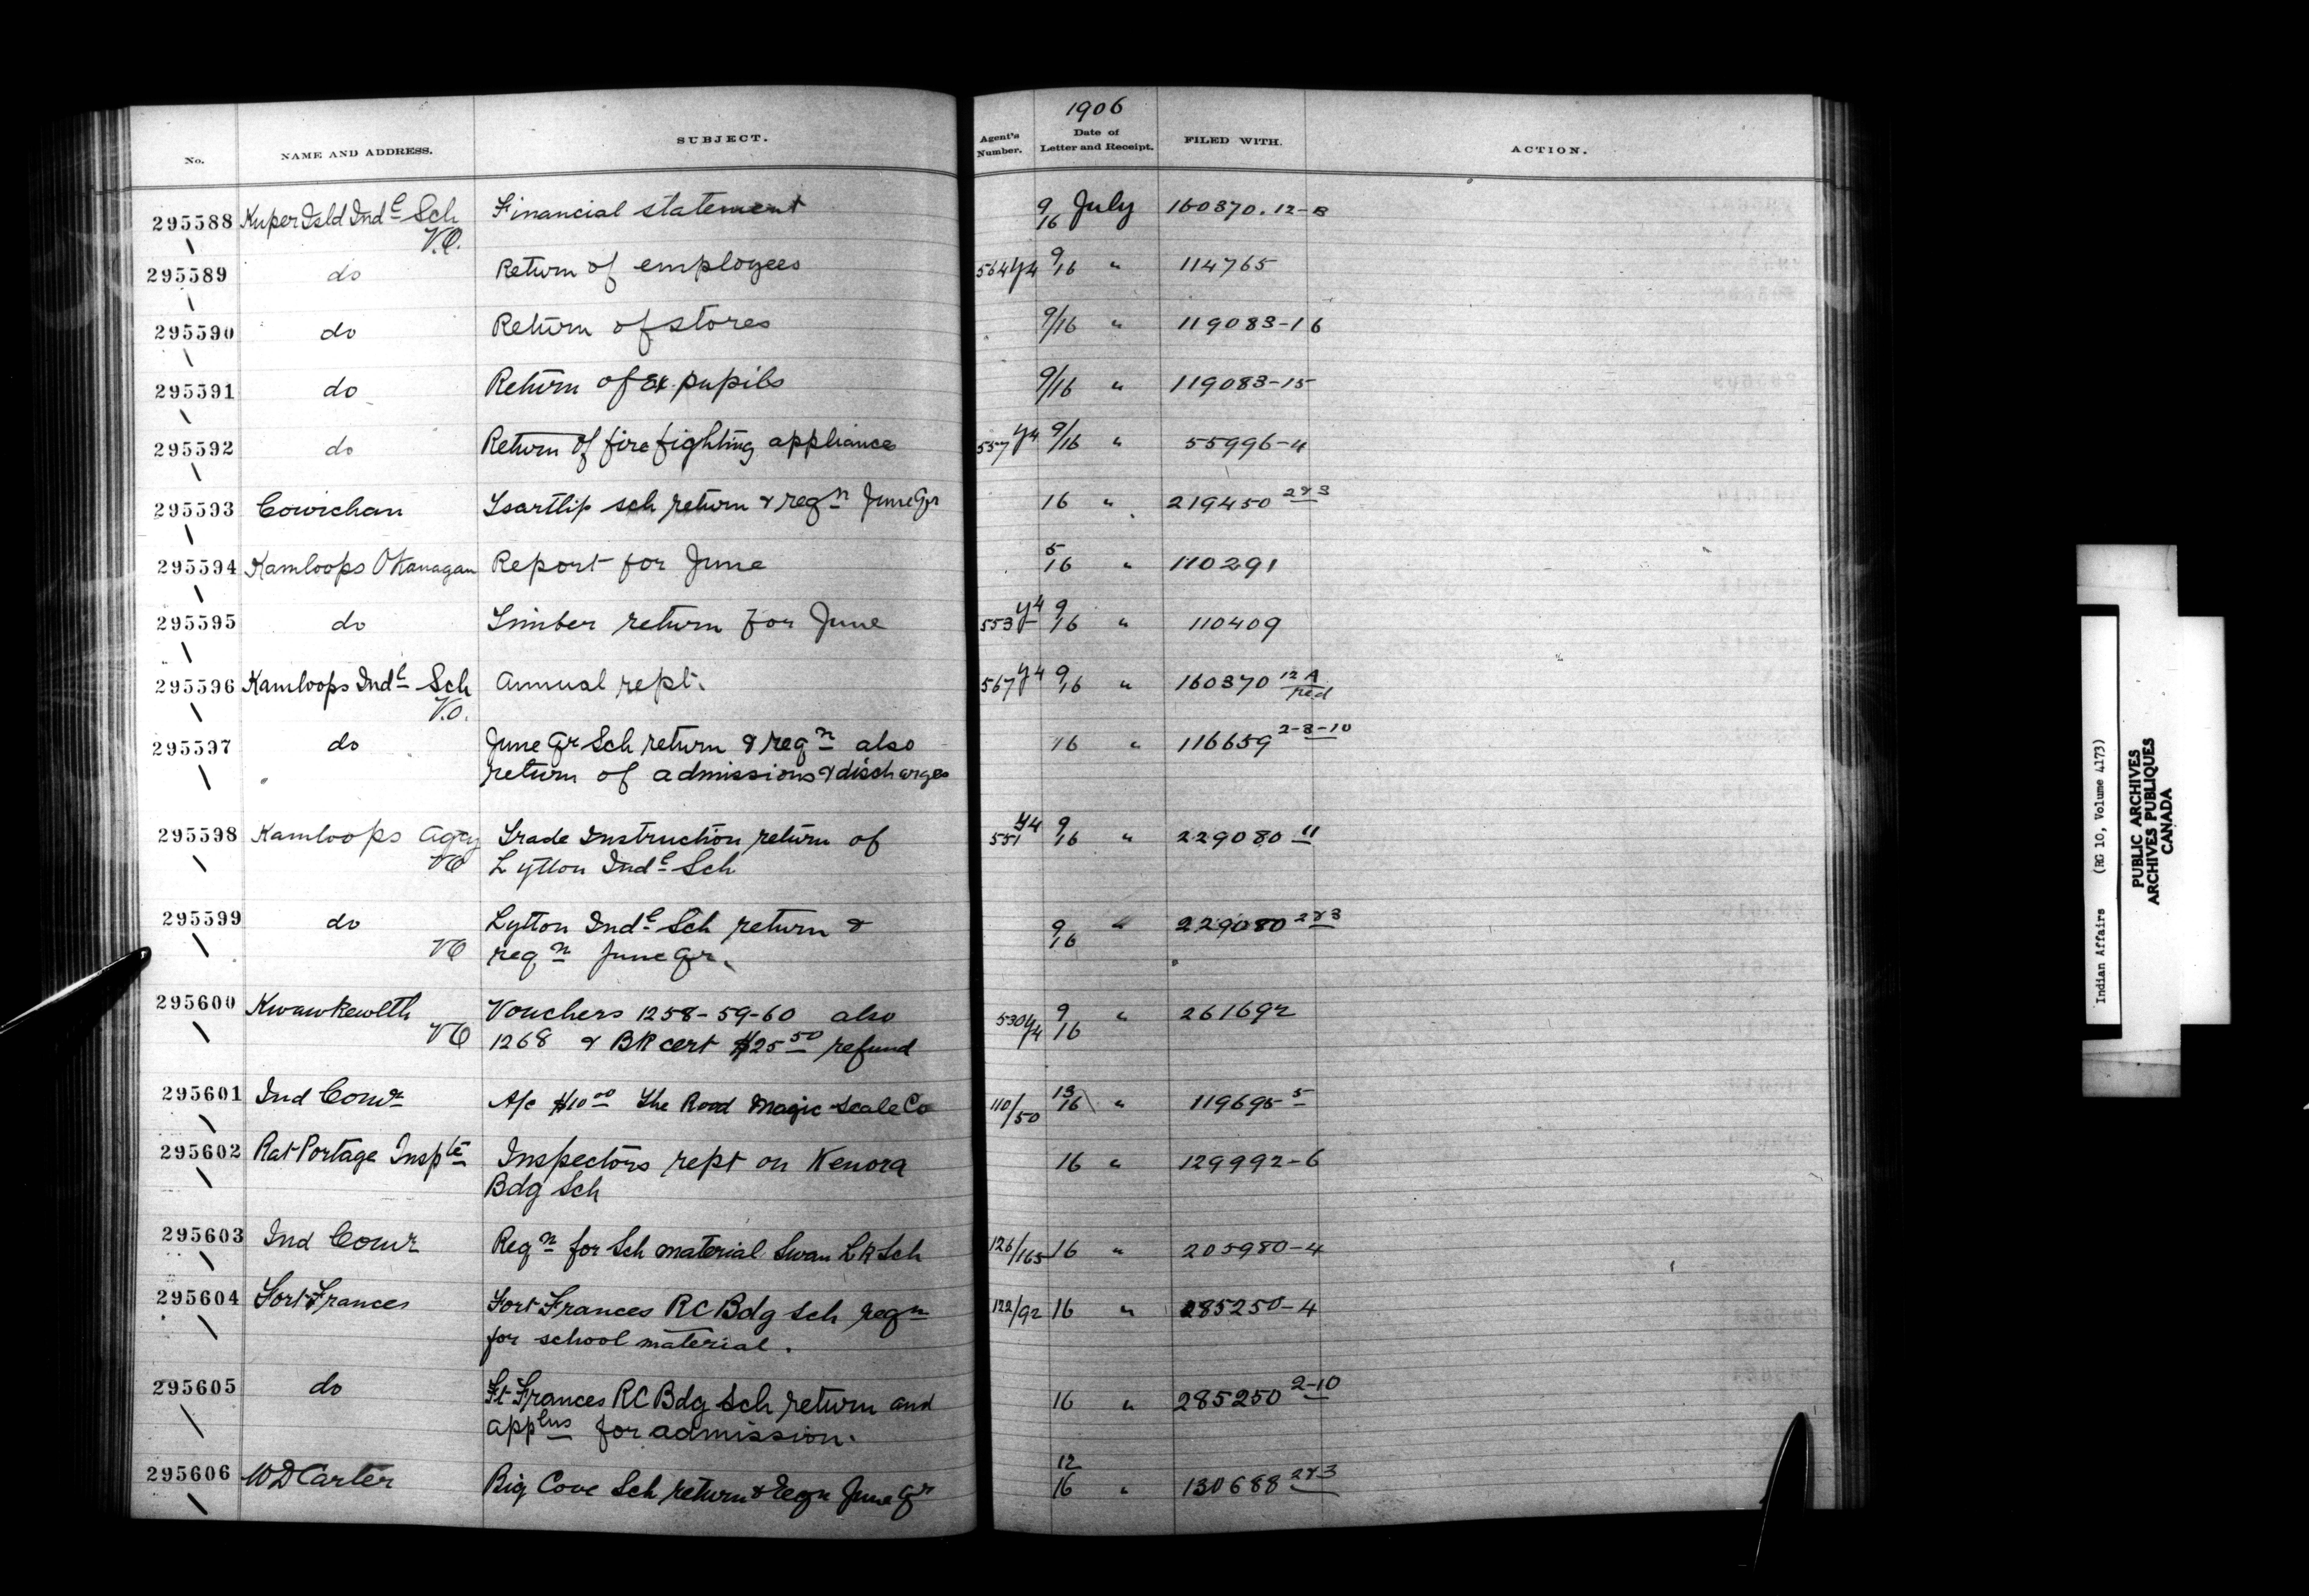 1906
No. NAME AND ADDRESS. SUBJECT. Agent's Number. Date of Letter and Receipt. FILED WITH. ACTION.
295588 Kuper Isld Indl Sch Financial statement 9/16 July 160370.12-B
V.O.
295589 do Return of employees 564 Y4 9/16 " 114765
295590 do Return of stores 9/16 " 119083-16
295591 do Return of Ex. pupils 9/16 " 119083-15
295592 do Return of fire fighting appliances 557 Y4 9/16 " 55996-4
295593 Cowichan Tsartlip sch return & reqn June Qr 16 " 219450 2&3
295594 Kamloops Okanagan Report for June 5/16 " 110291
295595 do Timber return for June 553 Y4 9/16 " 110409
295596 Kamloops Indl Sch Annual rept. 567 Y4 9/16 " 160370 12A
V.O.
295597 do June Qr Sch return & reqn also 16 " 116659 2-3-10
return of admissions & discharges
295598 Kamloops Agcy Trade Instruction return of 551 Y4 9/16 " 229080 11
VO Lytton Indl Sch
295599 do Lytton Indl Sch return & 9/16 " 229080 2&3
VO reqn June Qr.
295600 Kwawkewlth Vouchers 1258-59-60 also 530 Y4 9/16 " 261692
VO 1268 & BR cert $25 50 refund
295601 Ind Comr A/c $10 00 The Road Magic Scale Co 110/50 13/16 " 119695 5
295602 Rat Portage Inspte Inspectors rept on Kenora 16 " 129992-6
Bdg Sch
295603 Ind Comr Reqn for Sch material Swan L R Sch 126/165 16 " 205980-4
295604 Fort Frances Fort Frances RC Bdg Sch reqn 122/92 16 " 285250-4
for school material.
295605 do Ft Frances RC Bdg Sch return and 16 " 285250 2-10
applns for admission.
295606 W D Carter Big Cove Sch return & reqn June Qr 12/16 " 130688 2&3
Indian Affairs (RG 10, Volume 4173)
PUBLIC ARCHIVES
ARCHIVES PUBLIQUES
CANADA